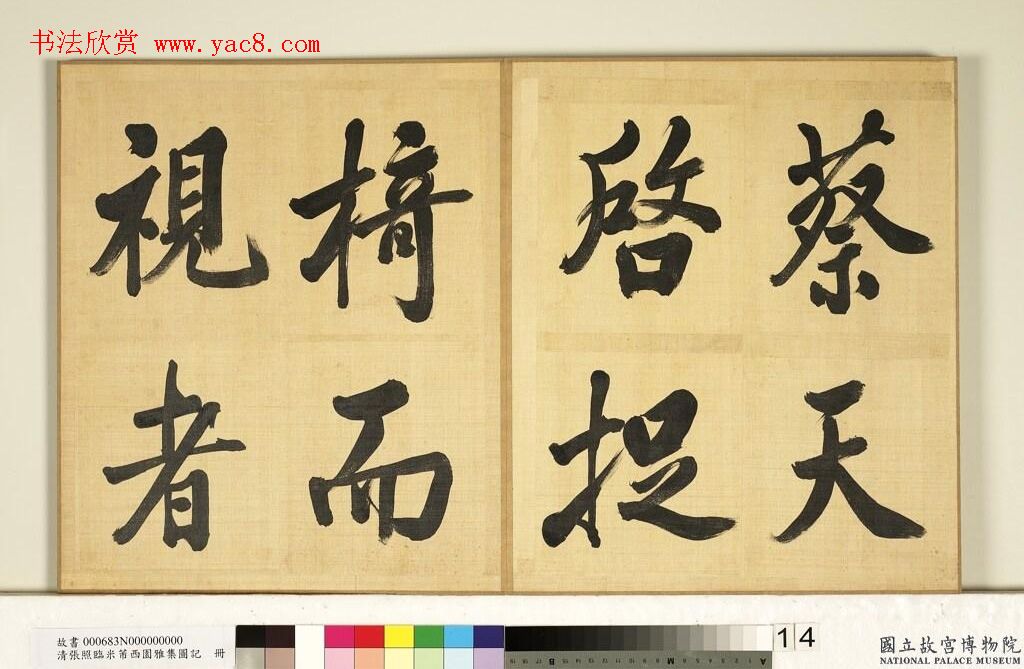 书法欣赏 www.yac8.com
蔡天
啓捉
椅而
視者
故書 000683N000000000
清張照臨米芾西園雅集圖記 冊
14
國立故宮博物院
NATIONAL PALACE MUSEUM